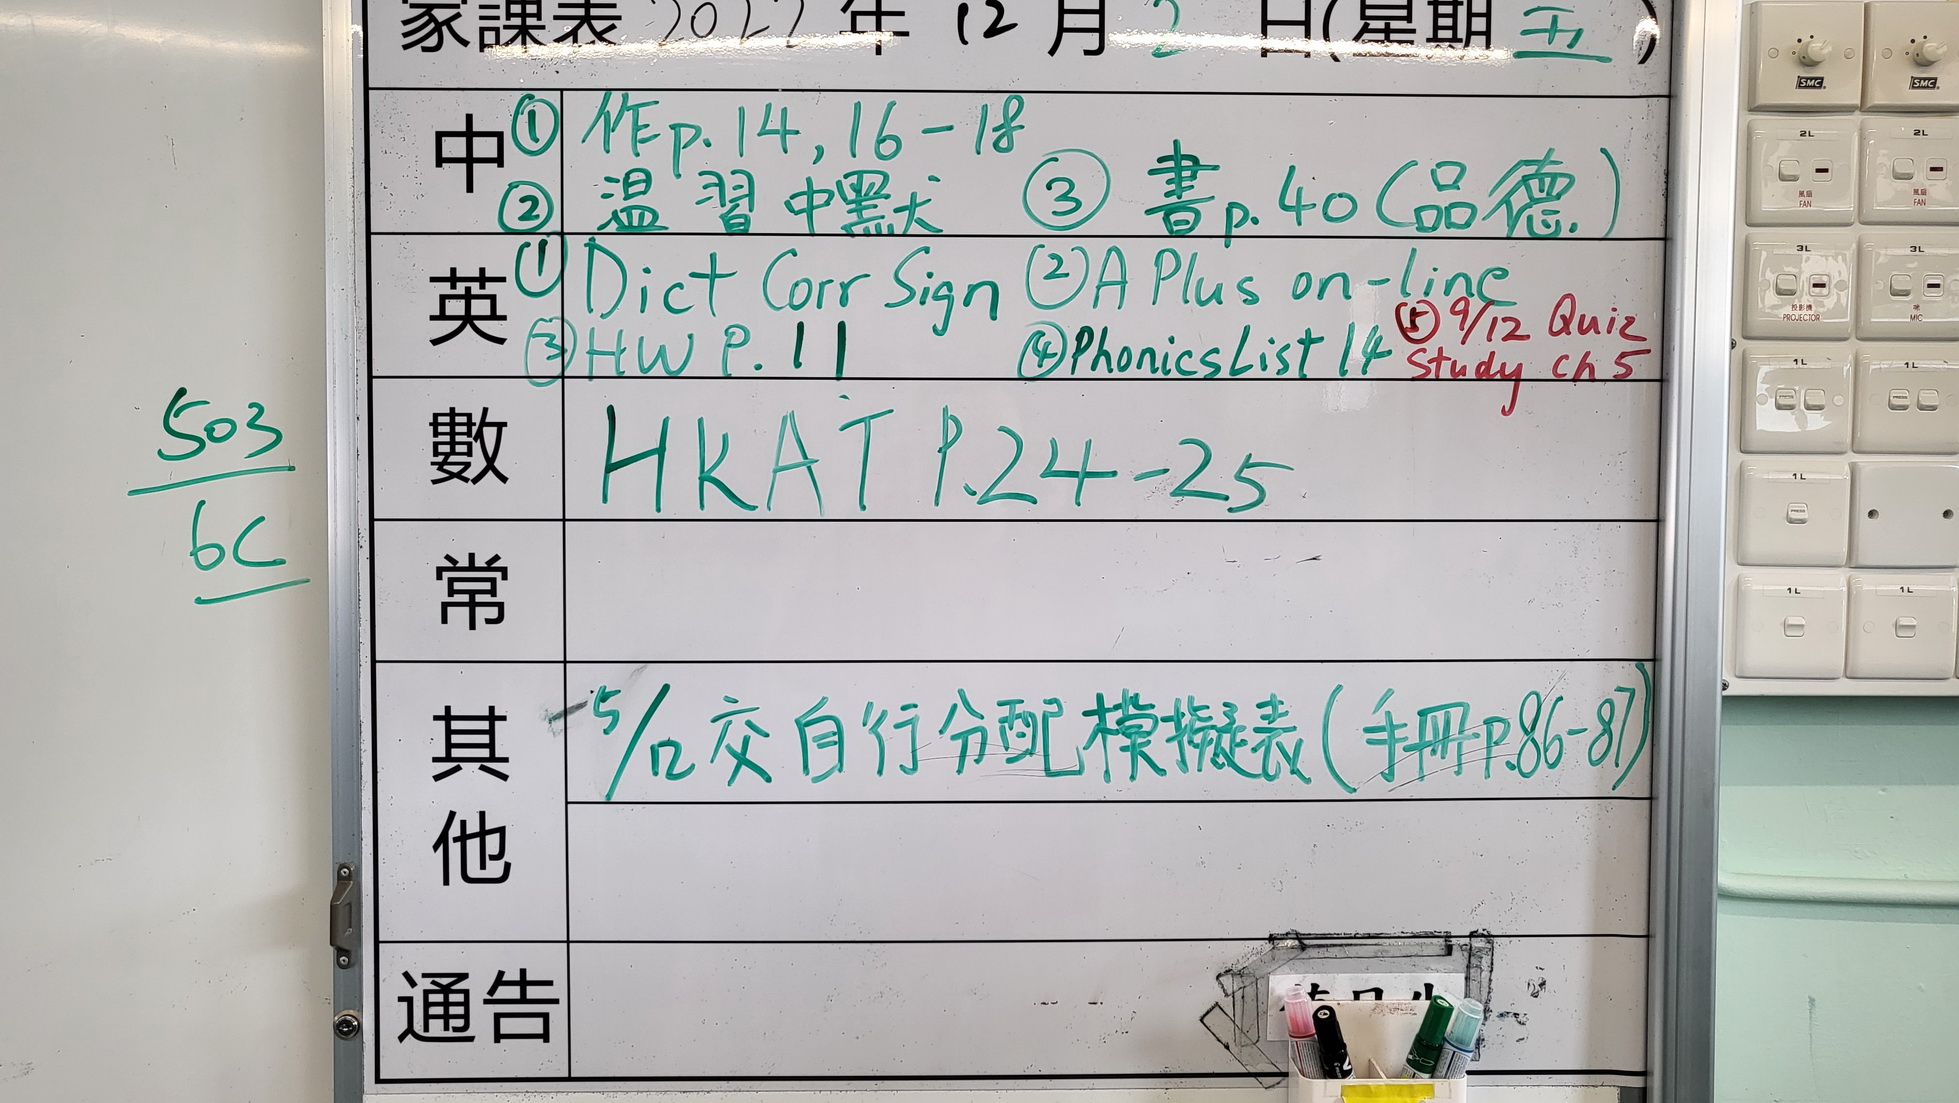 家課表 2022 年 12 月 2 日(星期 五)
中
① 作 p. 14, 16-18
② 溫習中默 ③ 書 p. 40 (品德)
英
① Dict Corr Sign ② A Plus on-line
③ HW P. 11 ④ Phonics List 14 ⑤ 9/12 Quiz
Study ch 5
數
HKAT P.24-25
常
其他
5/12 交自行分配模擬表(手冊p.86-87)
通告
503
6C
SMC
SMC
2L
風扇
FAN
2L
風扇
FAN
3L
投影機
PROJECTOR
3L
咪
MIC
1L
1L
1L
PRESS
1L
1L